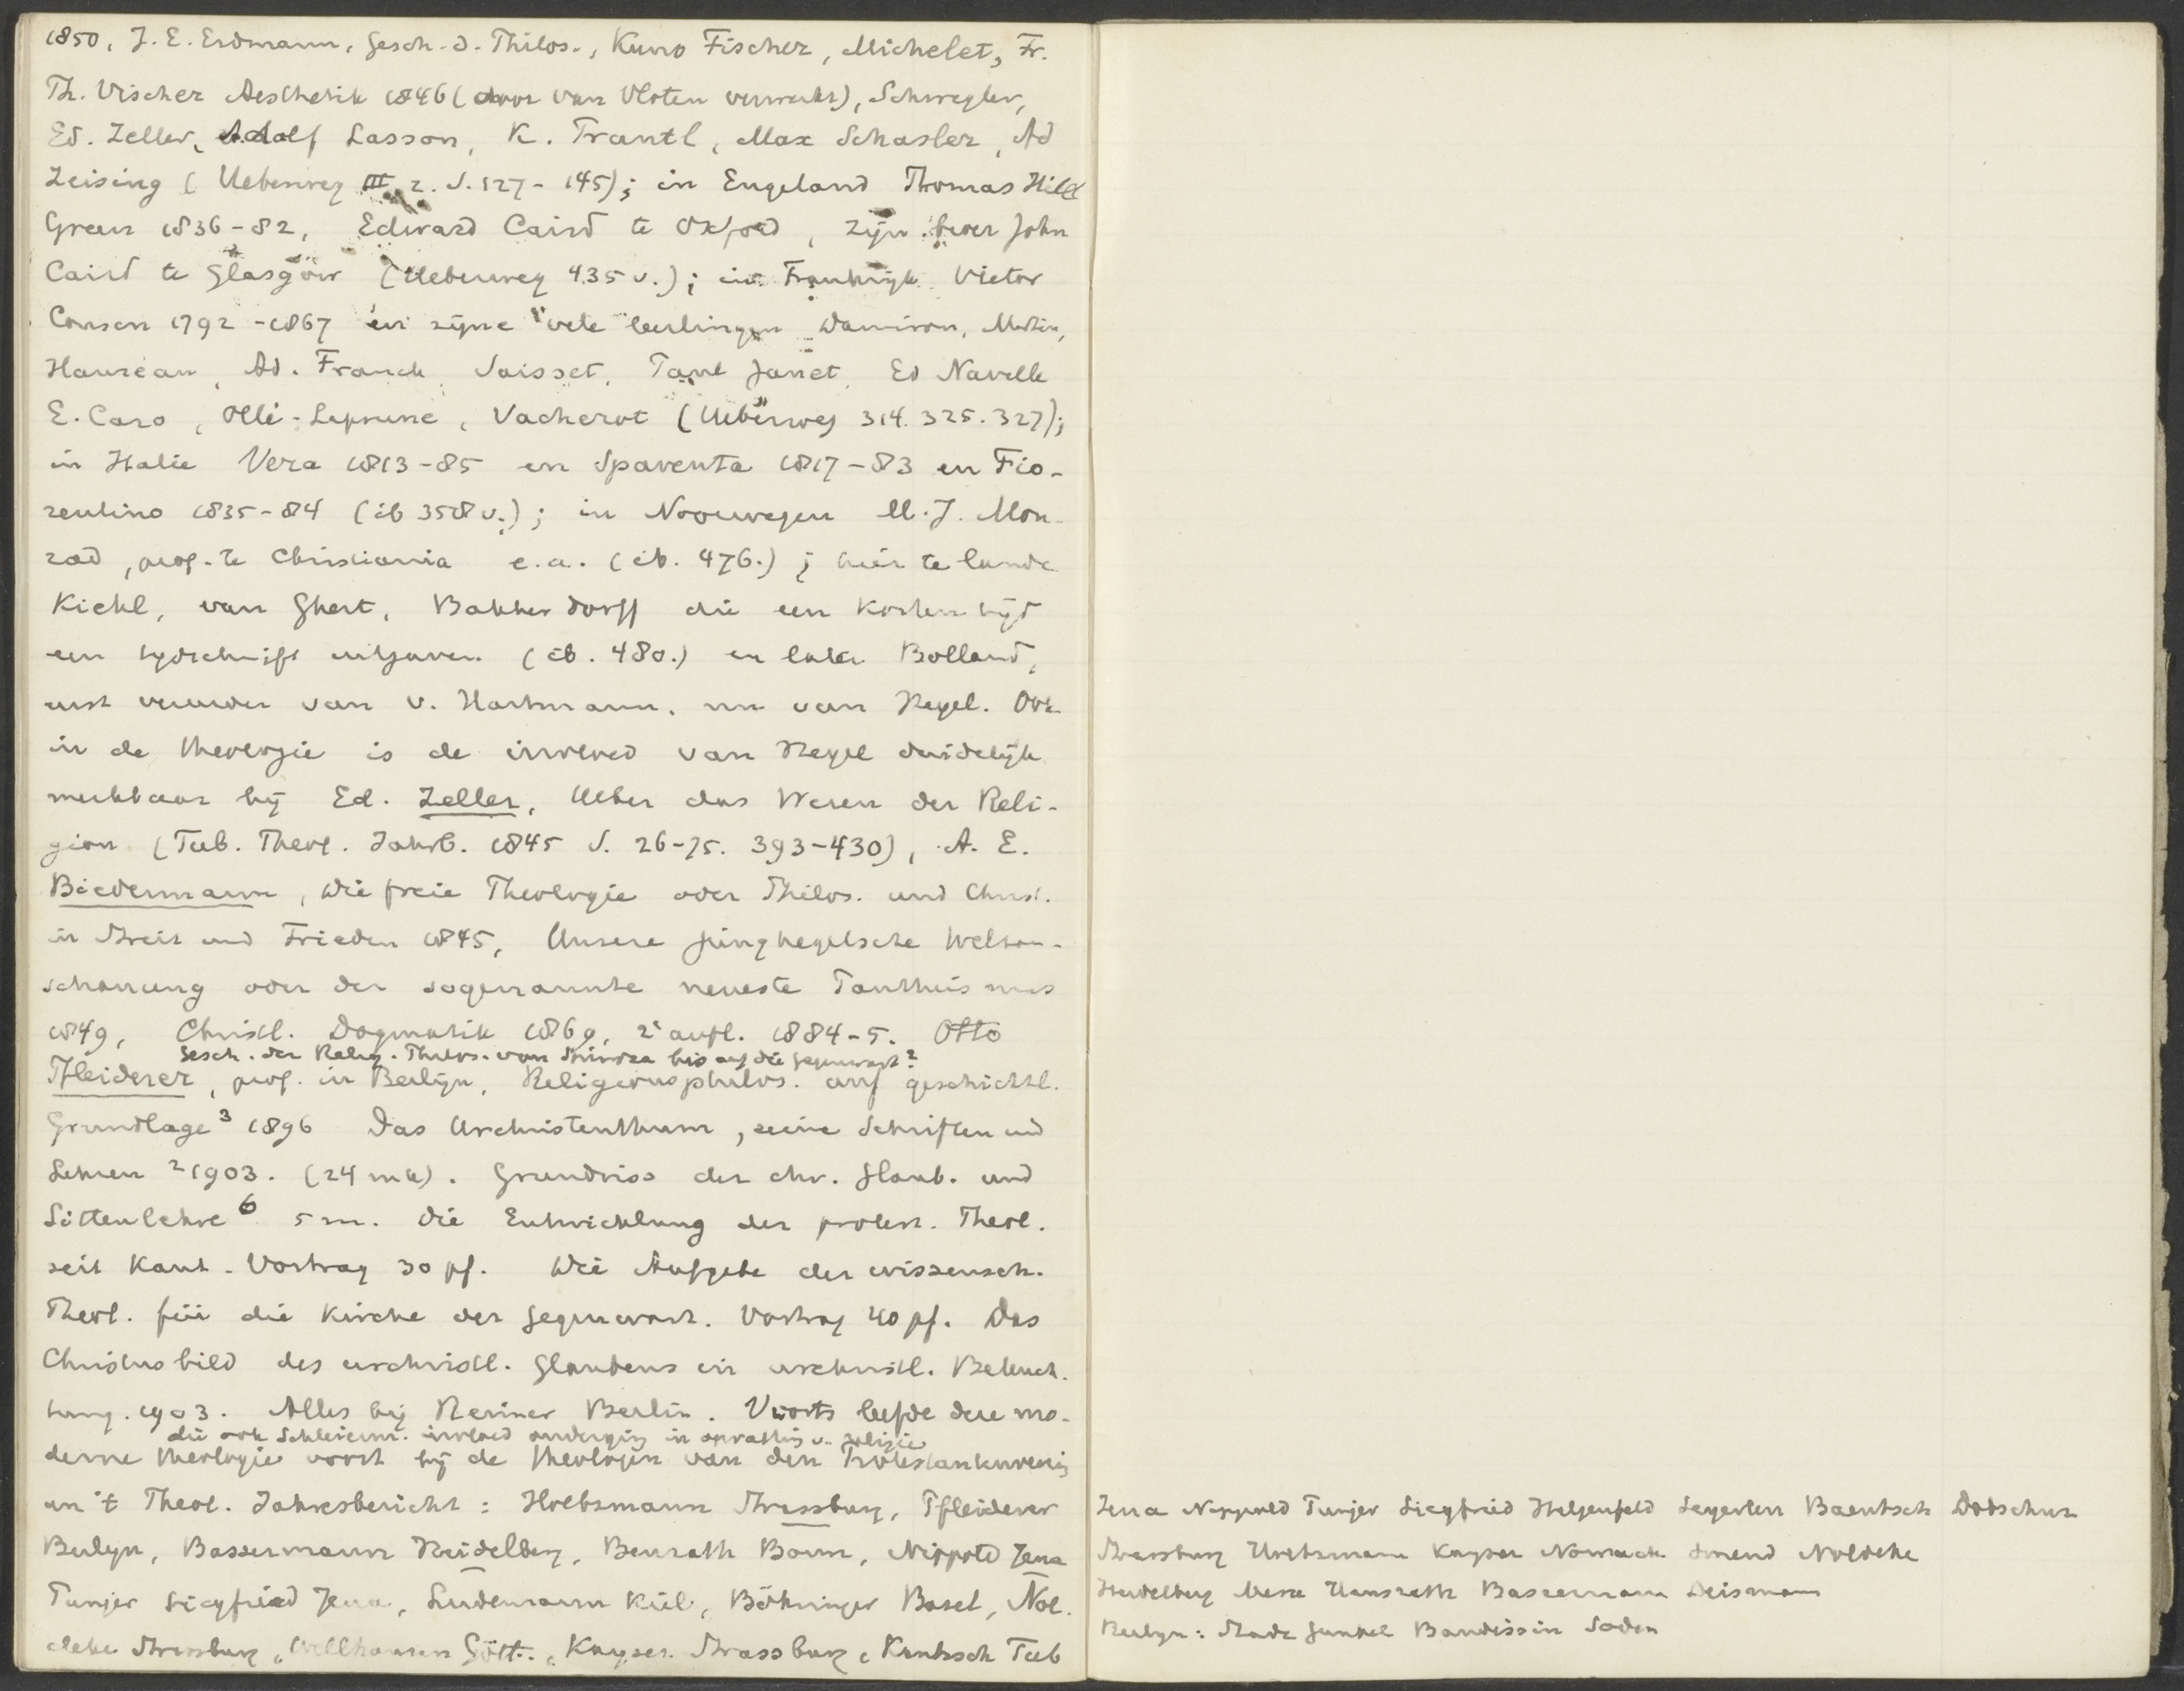 1850, J. E. Erdmann, Gesch. d. Philos., Kuno Fischer, Michelet, Fr.
Th. Vischer Aesthetik 1846 (door van Vloten verwerkt), Schwegler,
Ed. Zeller, Adolf Lasson, K. Prantl, Max Schasler, Ad
Zeising (Ueberweg III 2. S. 127-145); in Engeland Thomas Hill
Green 1836-82, Edward Caird te Oxford, zijn broer John
Caird te Glasgow (Ueberweg 435 v.); in Frankrijk Victor
Cousin 1792-1867 en zijne vele leerlingen Damiron, Martin,
Hauréau, Ad. Franck, Saisset, Paul Janet, Ed Naville
E. Caro, Ollé-Laprune, Vacherot (Ueberweg 314. 325. 327);
in Italie Vera 1813-85 en Spaventa 1817-83 en Fio-
rentino 1835-84 (ib 358 v.); in Noorwegen M. J. Mon-
rad, prof. te Christiania e.a. (ib. 476.); hier te lande
Kiehl, van Ghert, Bakker Dorff die een korten tijd
een tijdschrift uitgaven (ib. 480.) en later Bolland,
eerst vereerder van v. Hartmann, nu van Hegel. Ook
in de theologie is de invloed van Hegel duidelijk
merkbaar bij Ed. Zeller, Ueber das Wesen der Reli-
gion (Tub. Theol. Jahrb. 1845 S. 26-75. 393-430), A. E.
Biedermann, Die freie Theologie oder Philos. und Christ.
in Streit und Frieden 1845, Unsere junghegelsche Weltan-
schauung oder der sogenannte neueste Pantheismus
1849, Christl. Dogmatik 1869, 2e aufl. 1884-5. Otto
Gesch. der Relig. Philos. von Spinoza bis auf die Gegenwart?
Pfleiderer, prof. in Berlijn, Religionsphilos. auf geschichtl.
Grundlage 3 1896 Das Urchristenthum, seine Schriften und
Lehren 2 1903. (24 mk). Grundriss der chr. Glaub. und
Sittenlehre 6 5 m. Die Entwicklung der protest. Theol.
seit Kant. Vortrag 30 pf. Die Aufgabe der wissensch.
Theol. für die Kirche der Gegenwart. Vortrag 40 pf. Das
Christusbild des urchristl. Glaubens in urchristl. Beleuch.
tung. 1903. Alles bij Reimer Berlin. Voorts leefde deze mo-
die ook Schleierm. invloed onderging in opvatting v. religie
derne theologie voort bij de theologen van den Protestantenverein
en 't Theol. Jahresbericht: Holtzmann Strassburg, Pfleiderer
Berlijn, Bassermann Heidelberg, Benrath Bonn, Nippold Jena
Punjer Siegfried Jena, Lüdemann Kiel, Böhringer Basel, Nöl-
deke Strassburg, Wellhausen Gött., Kayser Strassburg, Kautzsch Tub
Jena Nippold Punjer Siegfried Hilgenfeld Seyerlen Baentsch
Strassburg Holtzmann Kayser Nowack Smend Noldeke
Heidelberg Merx Hausrath Bassermann Deismann
Berlijn: Gunkel Baudissin Soden